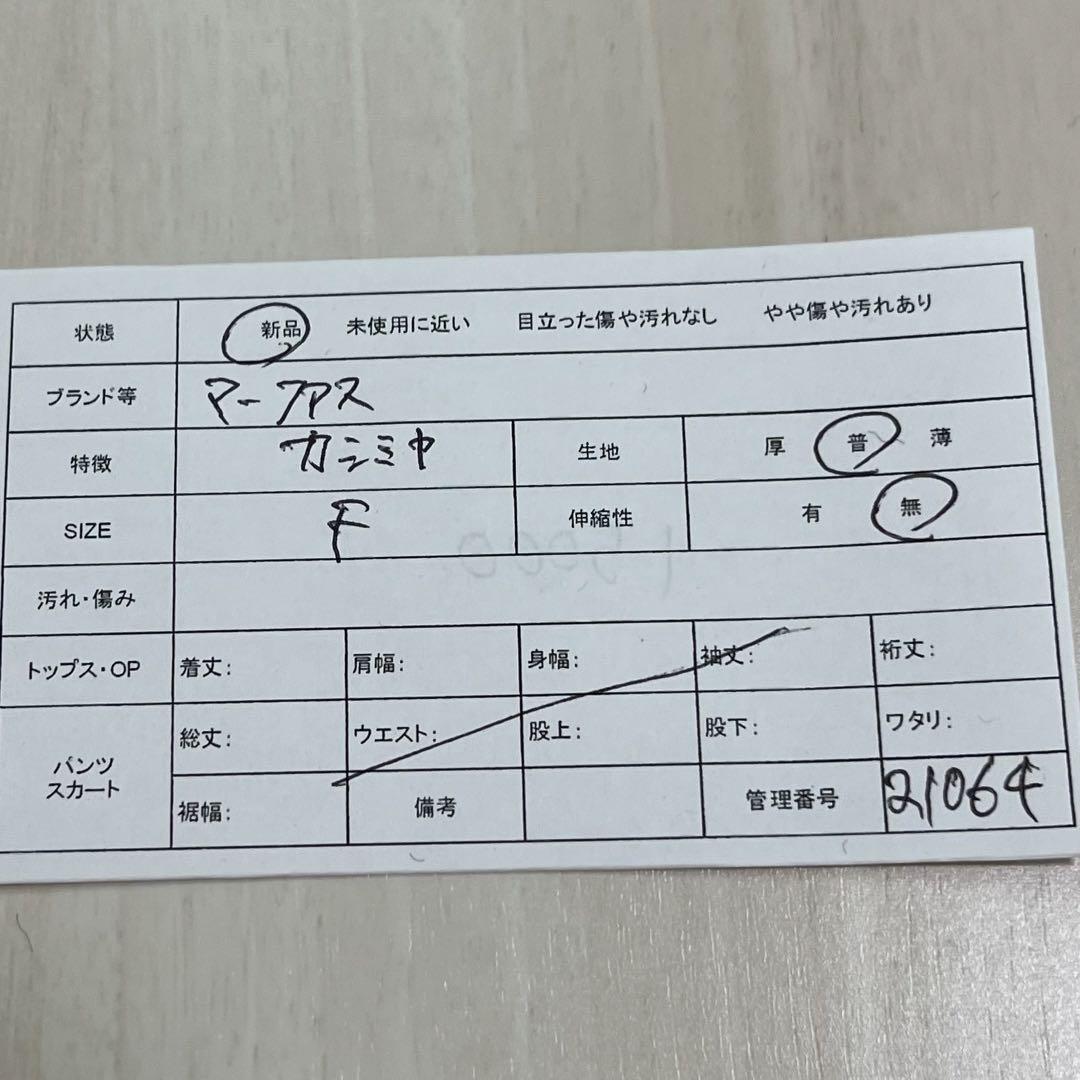 状態 新品 未使用に近い 目立った傷や汚れなし やや傷や汚れあり
ブランド等 マーファス
特徴 カシミヤ 生地 厚 普 薄
SIZE F 伸縮性 有 無
汚れ・傷み
トップス・OP 着丈: 肩幅: 身幅: 袖丈: 裄丈:
パンツ
スカート
総丈: ウエスト: 股上: 股下: ワタリ:
裾幅: 備考 管理番号 21064